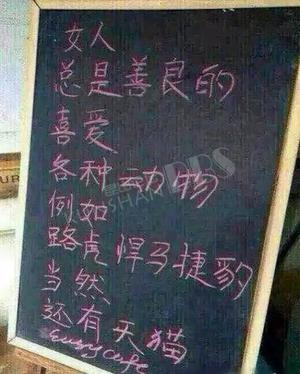 女人
总是善良的
喜爱
各种动物
例如
路虎悍马捷豹
当然
还有天猫